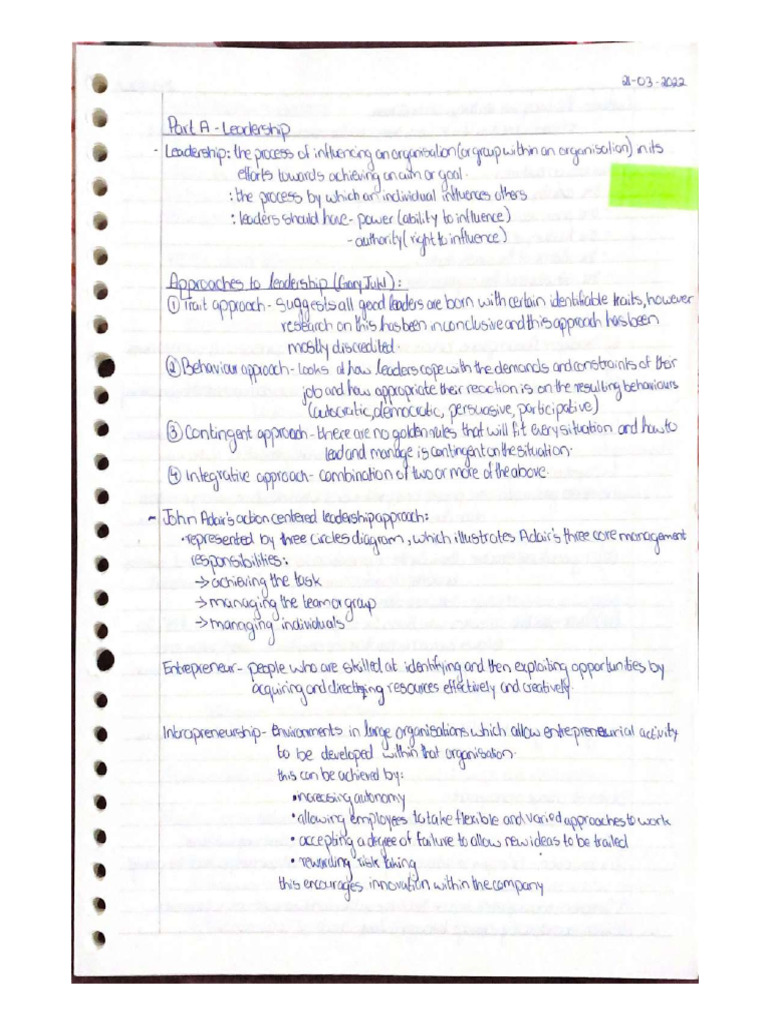 21-03-2022
Part A - Leadership
- Leadership: the process of influencing an organisation (or group within an organisation) in its
efforts towards achieving an aim or goal.
: the process by which an individual influences others
: leaders should have - power (ability to influence)
- authority (right to influence)
Approaches to leadership (Gary Jukl):
① Trait approach - suggests all good leaders are born with certain identifiable traits, however
research on this has been inconclusive and this approach has been
mostly discredited.
② Behaviour approach - looks at how leaders cope with the demands and constraints of their
job and how appropriate their reaction is on the resulting behaviours
(autocratic, democratic, persuasive, participative)
③ Contingent approach - there are no golden rules that will fit every situation and how to
lead and manage is contingent on the situation.
④ Integrative approach - combination of two or more of the above.
~ John Adair's action centered leadership approach:
• represented by three circles diagram, which illustrates Adair's three core management
responsibilities:
→ achieving the task
→ managing the team or group
→ managing individuals
Entrepreneur - people who are skilled at identifying and then exploiting opportunities by
acquiring and directing resources effectively and creatively.
Intrapreneurship - Environments in large organisations which allow entrepreneurial activity
to be developed within that organisation.
this can be achieved by:
• increasing autonomy
• allowing employees to take flexible and varied approaches to work
• accepting a degree of failure to allow new ideas to be trailed
• rewarding risk taking
this encourages innovation within the company